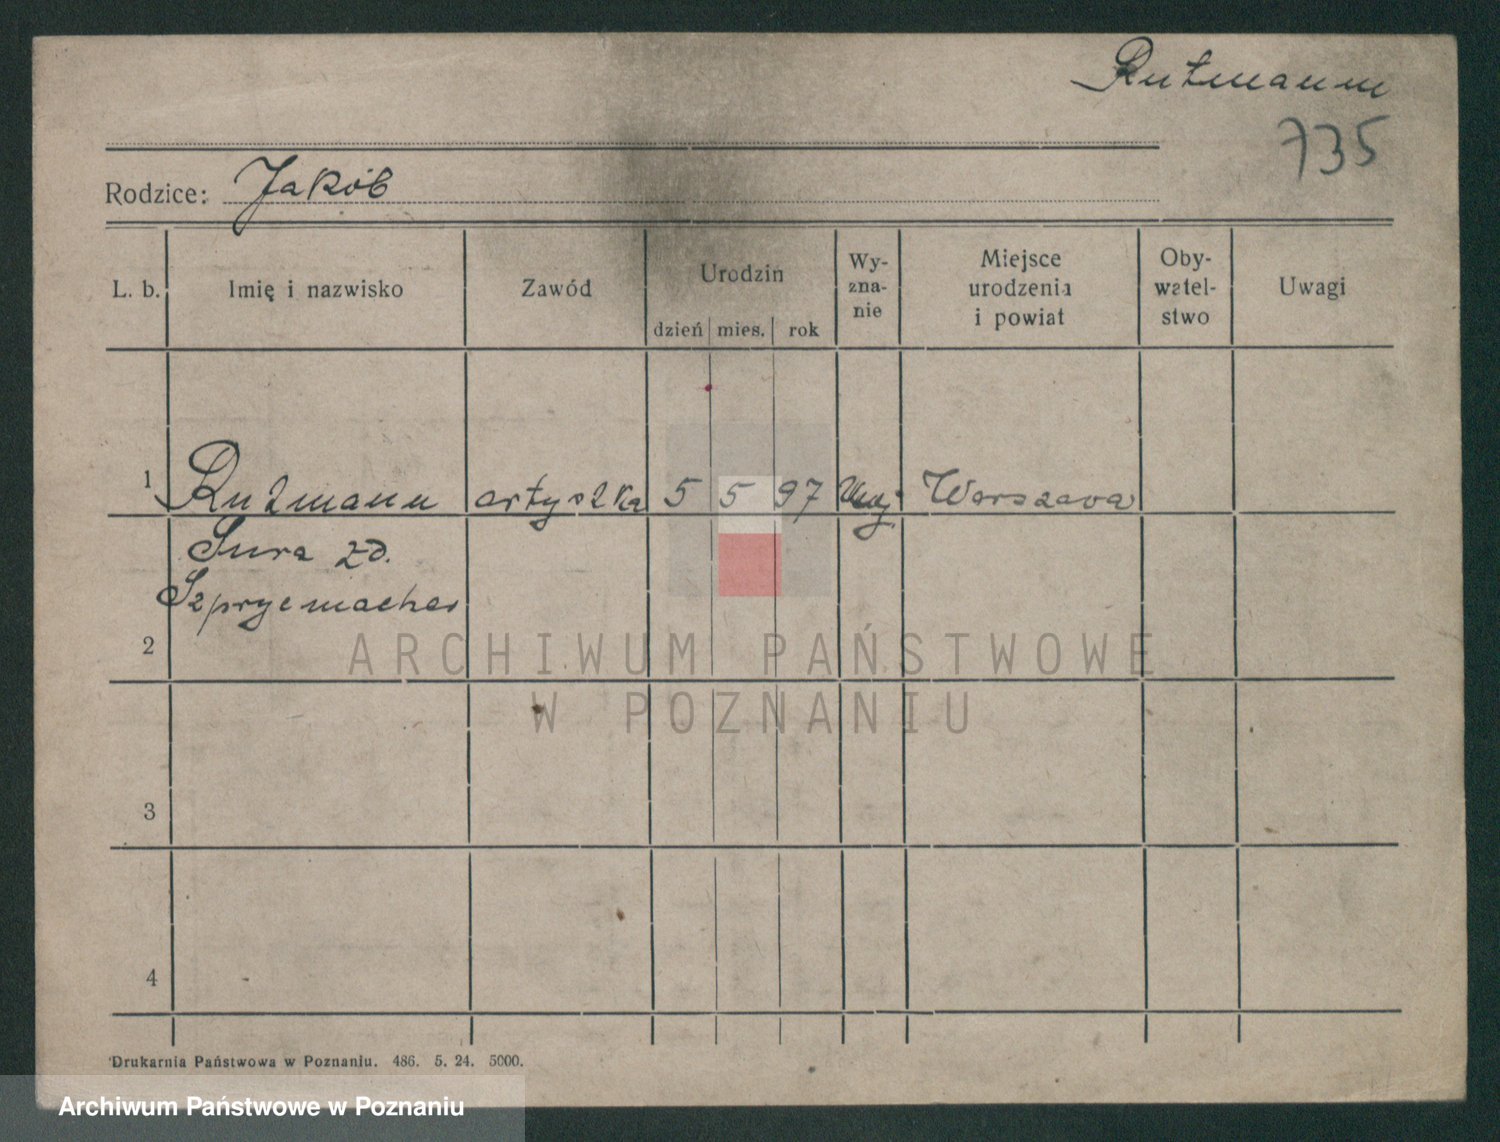 Rutmann
735
Rodzice: Jakób
L. b.
Imię i nazwisko
Zawód
Urodzin
dzień mies. rok
Wy-
zna-
nie
Miejsce
urodzenia
i powiat
Oby-
watel-
stwo
Uwagi
1 Rutmann artyszka 5 5 97 Warszawa
Sura zd.
2
3
4
Drukarnia Państwowa w Poznaniu. 486. 5. 24. 5000.
ARCHIWUM PAŃSTWOWE
W POZNANIU
Archiwum Państwowe w Poznaniu